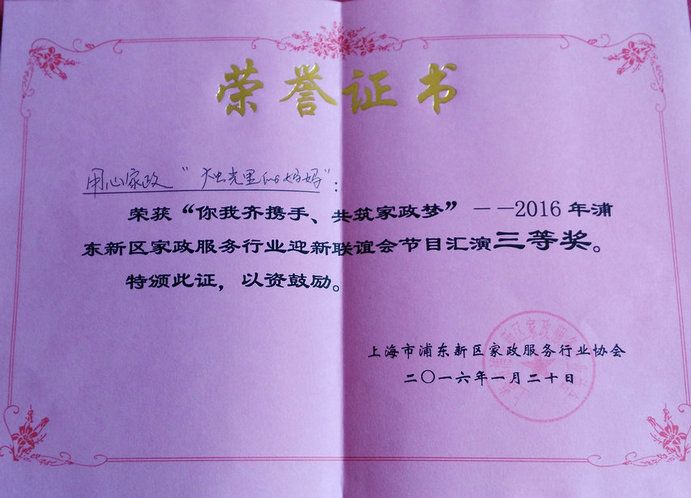 荣誉证书
用心家政“烛光里的妈妈”:
荣获“你我齐携手、共筑家政梦”——2016年浦
东新区家政服务行业迎新联谊会节目汇演三等奖。
特颁此证，以资鼓励。
上海市浦东新区家政服务行业协会
二〇一六年一月二十日